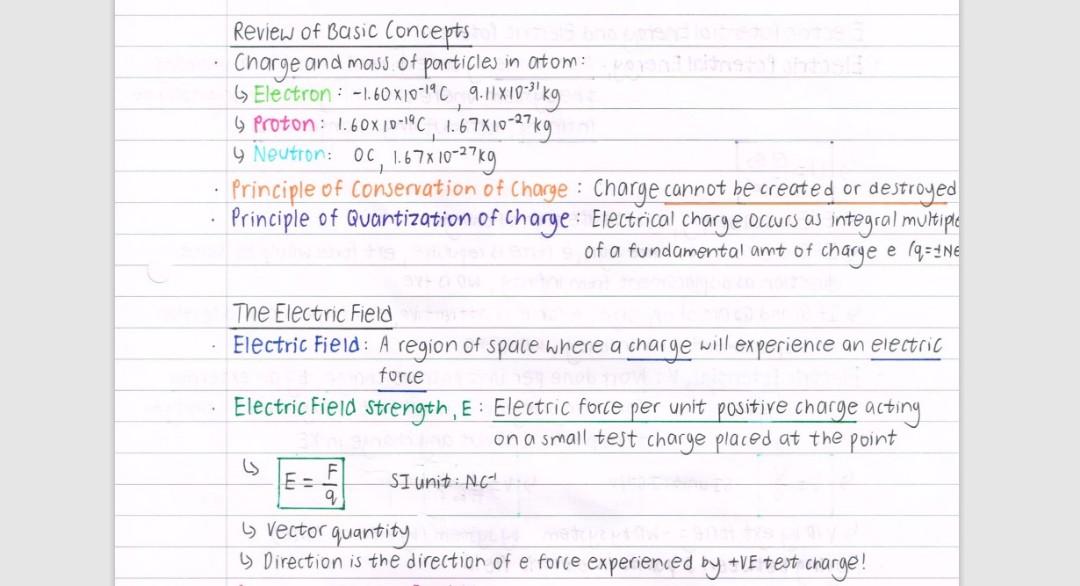 Review of Basic Concepts
· Charge and mass of particles in atom:
↳ Electron: -1.60×10⁻¹⁹C, 9.11×10⁻³¹kg
↳ Proton: 1.60×10⁻¹⁹C, 1.67×10⁻²⁷kg
↳ Neutron: 0C, 1.67×10⁻²⁷kg
· Principle of Conservation of Charge: Charge cannot be created or destroyed
· Principle of Quantization of Charge: Electrical charge occurs as integral multiple
of a fundamental amt of charge e (q=±Ne
The Electric Field
· Electric Field: A region of space where a charge will experience an electric
force
· Electric Field Strength, E: Electric force per unit positive charge acting
on a small test charge placed at the point
↳ E = F/q SI unit: NC⁻¹
↳ Vector quantity
↳ Direction is the direction of e force experienced by +VE test charge!